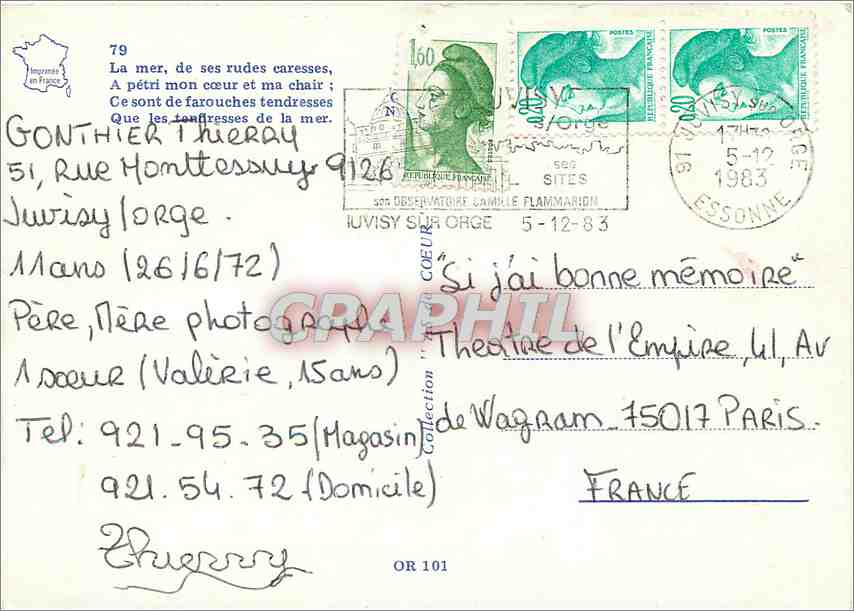 Imprimée
en France
79
La mer, de ses rudes caresses,
A pétri mon cœur et ma chair ;
Ce sont de farouches tendresses
Que les tendresses de la mer.
1,60
RÉPUBLIQUE FRANÇAISE
POSTES
0,20
RÉPUBLIQUE FRANÇAISE
POSTES
0,20
RÉPUBLIQUE FRANÇAISE
JUVISY
s/Orge
ses
SITES
son OBSERVATOIRE CAMILLE FLAMMARION
JUVISY SUR ORGE 5-12-83
91 JUVISY SUR ORGE
5-12
1983
ESSONNE
GONTHIER Thierry
51, Rue Monttessuy 9126
Juvisy/orge.
11 ans (26/6/72)
Père, Mère photographe
1 sœur (Valérie, 15 ans)
Tel: 921-95-35 (Magasin)
921.54.72 (Domicile)
Thierry
"Si j'ai bonne mémoire"
Theatre de l'Empire, 41, Av
de Wagram - 75017 PARIS.
FRANCE
Collection " As de COEUR
OR 101
GRAPHIL